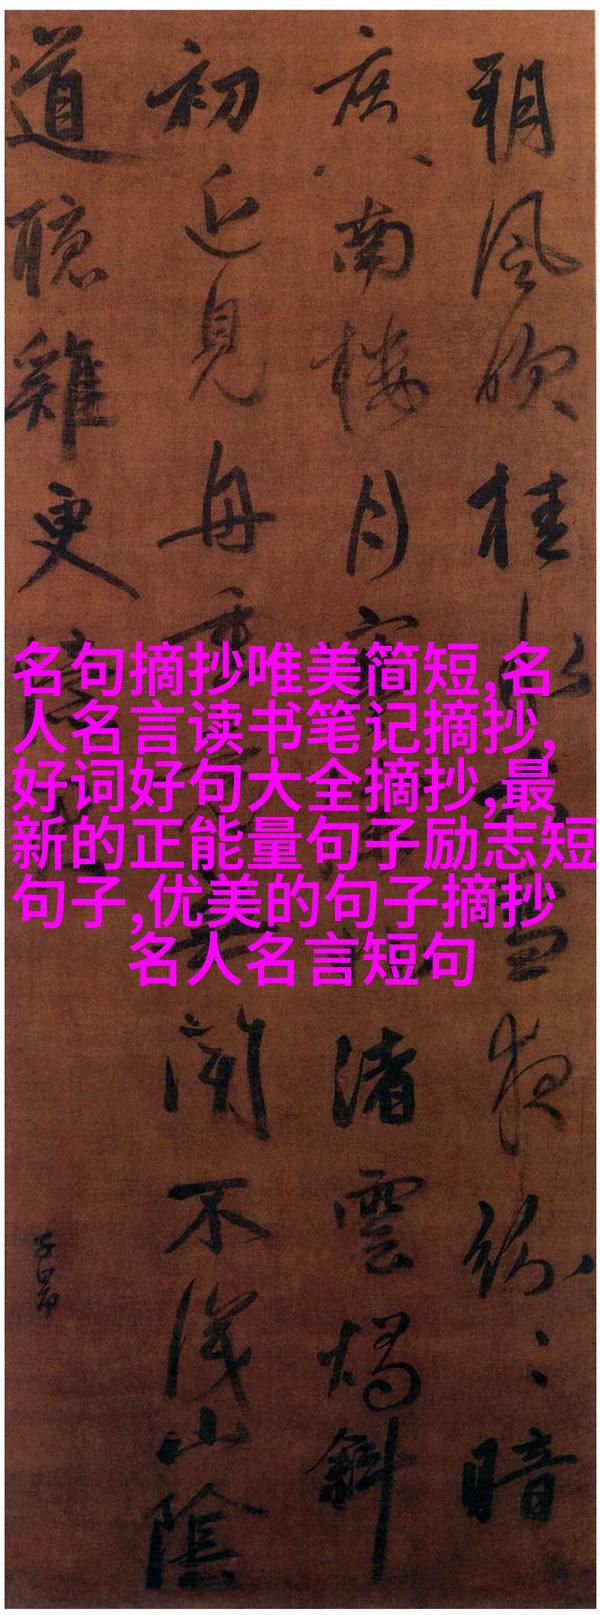 朔風吹桂水雪夜紛〻暗
度南樓月寒渚雲燭斜
初近見舟重聞不識山陰
道聽雞更憶
子昂
名句摘抄唯美简短,名
人名言读书笔记摘抄,
好词好句大全摘抄,最
新的正能量句子励志短
句子,优美的句子摘抄
名人名言短句